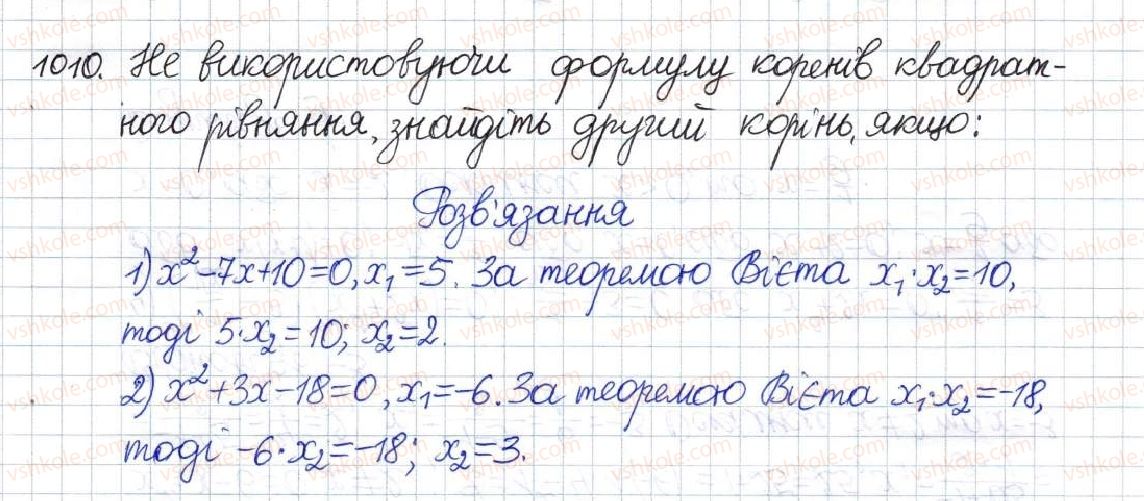 1010. Не використовуючи формулу коренів квадрат-
ного рівняння, знайдіть другий корінь, якщо:
Розв'язання
1) x²-7x+10=0, x₁=5. За теоремою Вієта x₁·x₂=10,
тоді 5·x₂=10; x₂=2.
2) x²+3x-18=0, x₁=-6. За теоремою Вієта x₁·x₂=-18,
тоді -6·x₂=-18; x₂=3.